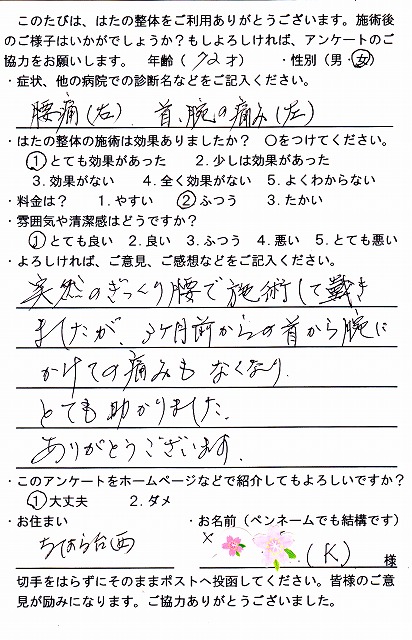 このたびは、はたの整体をご利用ありがとうございます。施術後
のご様子はいかがでしょうか？もしよろしければ、アンケートのご
協力をお願いします。 年齢（ 72 才） ・性別（男・女）
・症状、他の病院での診断名などをご記入ください。
腰痛(右)、首、腕の痛み(左)
・はたの整体の施術は効果ありましたか？ ○をつけてください。
1とても効果があった 2.少しは効果があった
3.効果がない 4.全く効果がない 5.よくわからない
・料金は？ 1.やすい 2ふつう 3.たかい
・雰囲気や清潔感はどうですか？
1とても良い 2.良い 3.ふつう 4.悪い 5.とても悪い
・よろしければ、ご意見、ご感想などをご記入ください。
突然のぎっくり腰で施術して戴き
ましたが、3ヶ月前からの首から腕に
かけての痛みもなくなり
とても助かりました。
ありがとうございます。
・このアンケートをホームページなどで紹介してもよろしいですか？
1大丈夫 2.ダメ
・お住まい ・お名前（ペンネームでも結構です）
ちはら台西
(K) 様
切手をはらずにそのままポストへ投函してください。皆様のご意
見が励みになります。ご協力ありがとうございました。